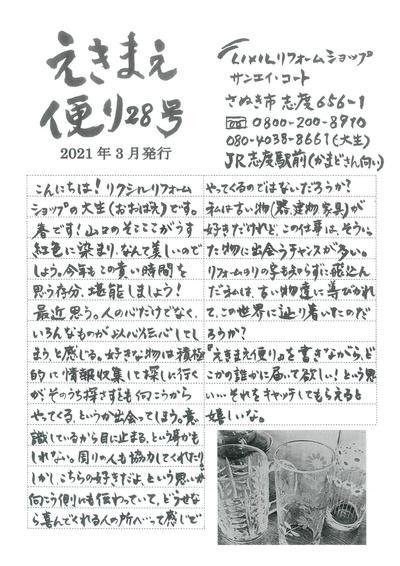 えきまえ
便り28号
2021年3月発行
LIXILリフォームショップ
サンエイ・コート
さぬき市志度656-1
0800-200-8910
080-4038-8661(大生)
JR志度駅前(かまどさん向い)
こんにちは!リクシルリフォーム
ショップの大生(おおばえ)です。
春です!山々のそこここがうす
紅色に染まり、なんて美しいので
しょう。今年もこの貴い時間を
思う存分、堪能しましょう!
最近思う。人の心だけでなく、
いろんなものが以心伝心してし
まうと感じる。好きな物は積極
的に情報収集して探しに行く
がそのうち探さずとも向こうから
やってくる、というか出会ってしまう。意
識しているから目に止まる、という事かも
しれない。周りの人も協力してくれたり。
しかし、こちらの好きだよ、という思いが
向こう側にも伝わっていて、どうせな
ら喜んでくれる人の所へ…って感じで
やってくるのではないだろうか?
私は古い物(器、建物、家具)が
好きだけれど、この仕事は、そうい
った物に出会うチャンスが多い。
リフォームのリの字も知らずに飛込ん
だ私は、古い物達に導びかれ
て、この世界に辿り着いたのだ
ろうか?
『えきまえ便り』を書きながら、ど
こかの誰かに届いて欲しい!という思
い…それをキャッチしてもらえると
嬉しいな。